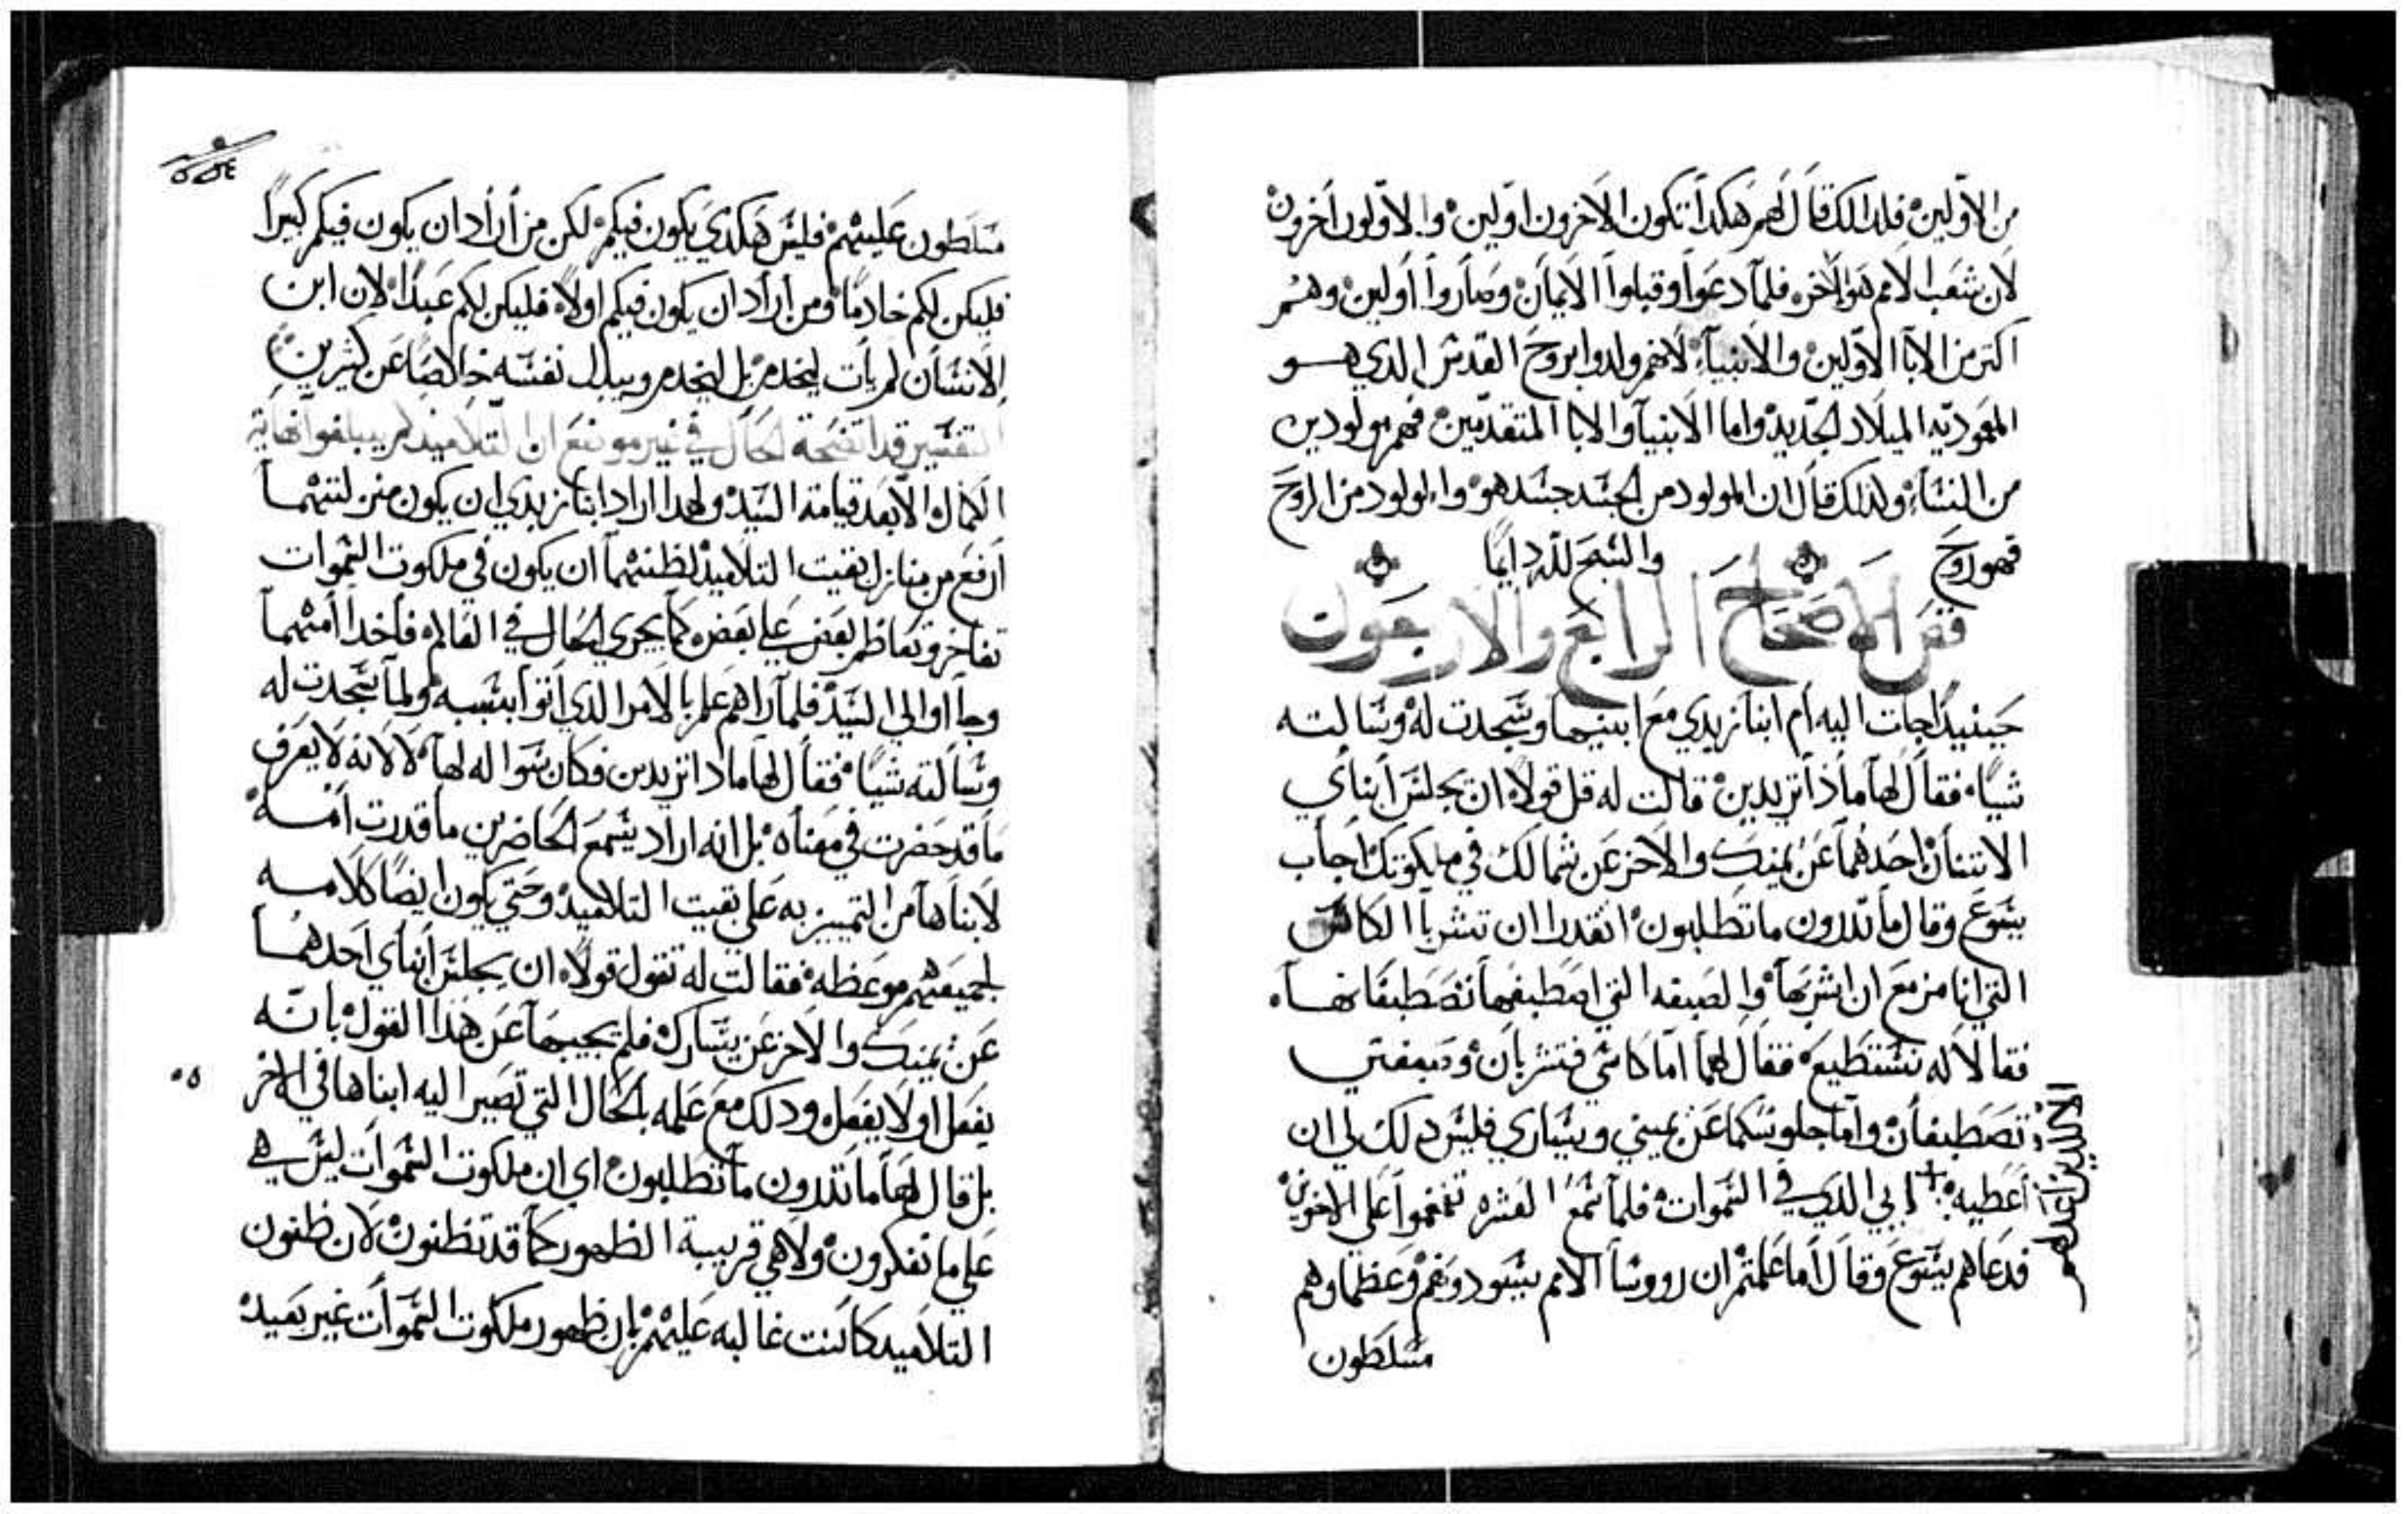 من الاولين فلدالك قال لهم هكدا تكون الاخرون اولين والاولون اخرون
لان شعب الامم هو الاخر فلما دعوا وقبلوا الايمان وصاروا اولين وهم
اكتر من الابا الاولين والانبياء لانهم ولدوا بروح القدس الدي هو
المعموديه الميلاد الجديد واما الانبيا والابا المتقدمين فهم مولودين
من النساء ولدلك قال ان المولود من الجسد جسد هو والمولود من الروح
فهو روح والسبح لله دايما
فص الاصحاح الرابع والاربعون
حينيدا جات اليه ام ابنا زبدي مع ابنيها وسجدت له وسالته
شيا فقال لها ماذا تريدين قالت له قل قولا ان يجلس ابناي
الاتنان احدهما عن يمينك والاخر عن شمالك في ملكوتك اجاب
يسوع وقال ما تدرون ما تطلبون اتقدرا ان تشربا الكاس
التي انا مزمع ان اشربها والصبغه التي اصطبغها تصطبغانها
فقالا له نستطيع فقال لهما اما كاسي فتشربان وصبغتي
تصطبغان واما جلوسكما عن يميني ويساري فليس دلك لي ان
اعطيه + ابي الدي في السموات فلما سمع العشره تقمقموا على الاخوين
الا للدين اعد لهم
فدعاهم يسوع وقال اما علمتم ان رووسا الامم يسودونهم وعظماوهم
مسلطون
٥٥٤
مسلطون عليهم فليس هكدي يكون فيكم لكن من اراد ان يكون فيكم كبيرا
فليكن لكم خادما ومن اراد ان يكون فيكم اولا فليكن لكم عبدا لان ابن
الانسان لم يات ليخدم بل ليخدم ويبدل نفسه خالصا عن كثيرين
التفسير قد اتضحة الحال في غير موضع ان التلاميد لم يبلغوا نهاية
الكمال الا بعد قيامة السيد ولهدا اراد ابنا زبدي ان يكون منزلتهما
ارفع من منازل بقيت التلاميد لظنهما ان يكون في ملكوت السموات
تفاخر وتعاظم بعض على بعض كما يجري الحال في العالم فاخدا امهما
وجااوا الي السيد فلما راهم علم بالامر الدي اتوا بسببه ولما سجدت له
وسالته شيا فقال لها مادا تريدين فكان سواله لها لا لانه لا يعرف
ما قد حضرت في معناه بل انه اراد يسمع الحاضرين ما قدرت امه
لابناها من التمييز به على بقيت التلاميد وحتي يكون ايضا كلامه
لجميعهم موعظه فقالت له تقول قولا ان يجلس ابناي احدهما
عن يمينك والاخر عن يسارك فلم يجيبها عن هذا القول بانه
يفعل او لا يفعل ودلك مع علمه بالحال التي تصير اليه ابناها في الاخر
بل قال لها ما تدرون ما تطلبون اي ان ملكوت السموات ليس هي
علي ما تفكرون ولا هي قريبة الظهور كما قد تظنون لان ظنون
التلاميد كانت غالبه عليهم بان ظهور ملكوت السموات غير بعيد